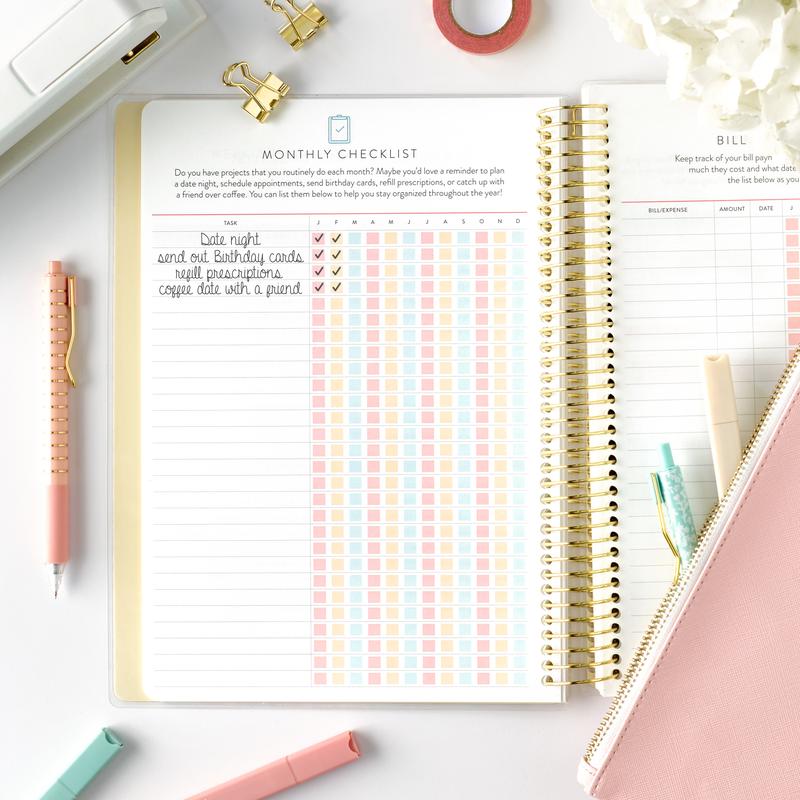 MONTHLY CHECKLIST
Do you have projects that you routinely do each month? Maybe you'd love a reminder to plan
a date night, schedule appointments, send birthday cards, refill prescriptions, or catch up with
a friend over coffee. You can list them below to help you stay organized throughout the year!
TASK J F M A M J J A S O N D
Date night
send out Birthday cards
refill prescriptions
coffee date with a friend
BILL
Keep track of your bill paym
much they cost and what date
the list below as you
BILL/EXPENSE AMOUNT DATE J